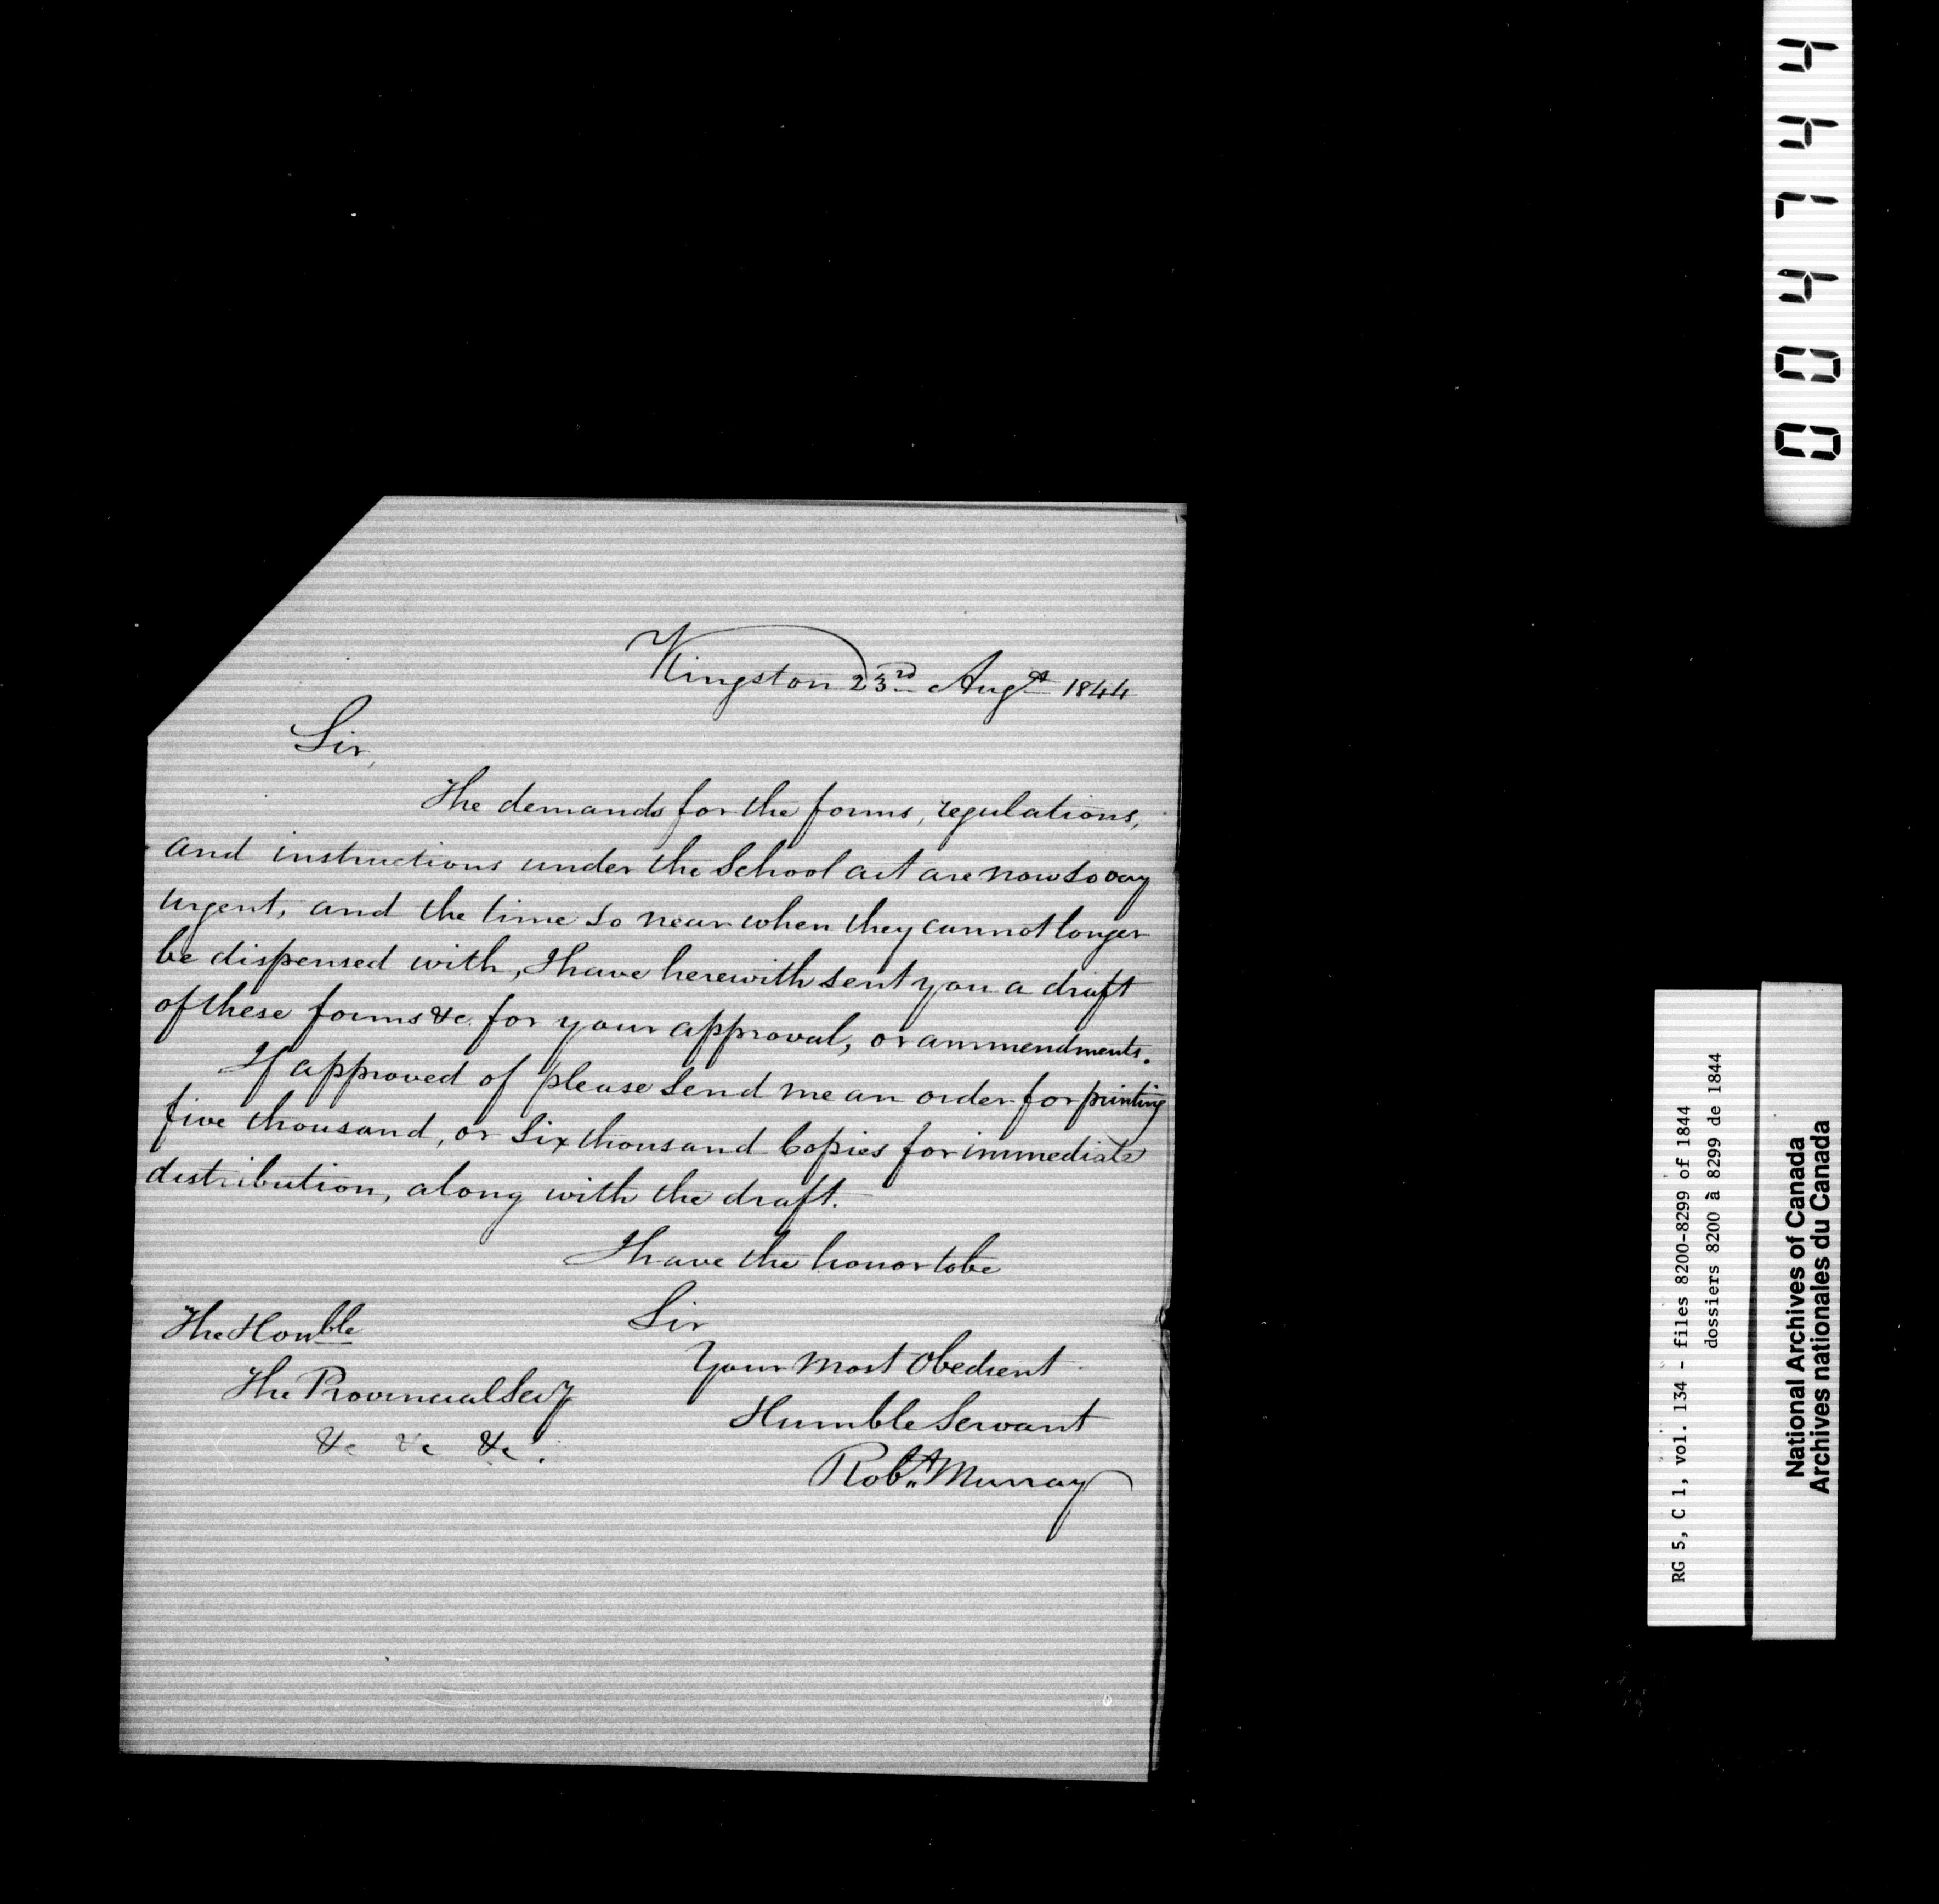 Kingston 23rd Augt 1844
Sir,
The demands for the forms, regulations,
and instructions under the School act are now so very
urgent, and the time so near when they cannot longer
be dispensed with, I have herewith sent you a draft
of these forms &c. for your approval, or ammendments.
If approved of please send me an order for printing
five thousand, or six thousand Copies for immediate
distribution, along with the draft.
I have the honor to be
Sir
Your Most Obedient
Humble Servant
Robt. Murray
The Honble
The Provincial Secy
&c &c &c.
004744
RG 5, C 1, vol. 134 - files 8200-8299 of 1844
dossiers 8200 à 8299 de 1844
National Archives of Canada
Archives nationales du Canada